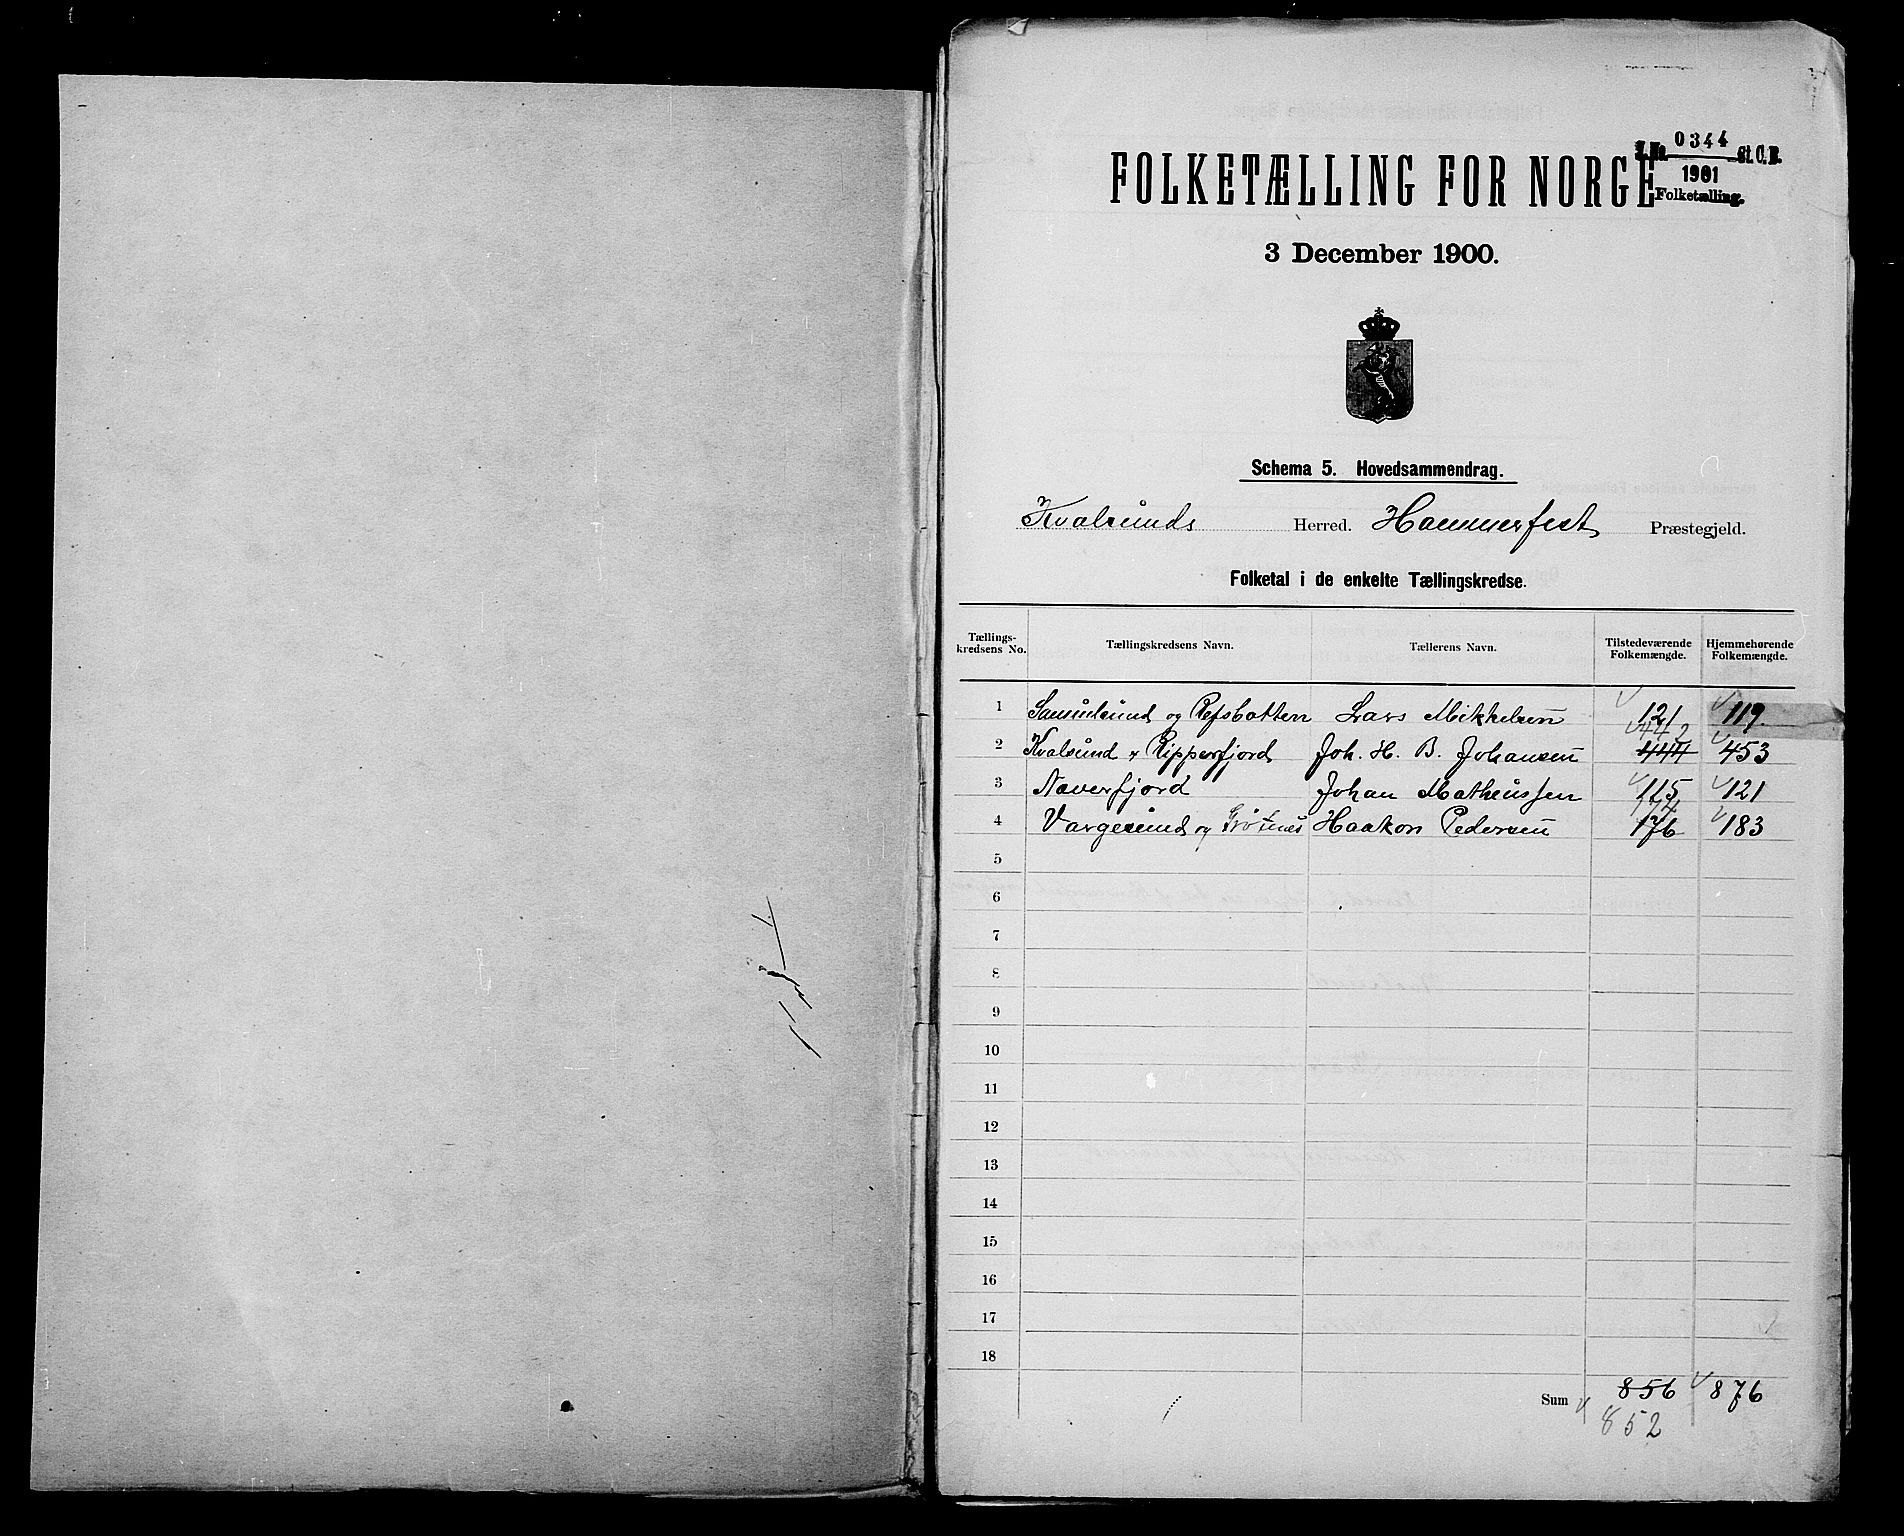 J. No. 0344 St. C. B.
1901
Folketælling.
FOLKETÆLLING FOR NORGE
3 December 1900.
Schema 5. Hovedsammendrag.
Kvalsunds Herred. Hammerfest Præstegjeld.
Folketal i de enkelte Tællingskredse.
Tællingskredsens No. Tællingskredsens Navn. Tællerens Navn. Tilstedeværende Folkemængde. Hjemmehørende Folkemængde.
1 Samuelsund og Refsbotten Lars Mikkelsen 121 119
442
2 Kvalsund & Ripperfjord Joh. H. B. Johansen 444 453
3 Naverfjord Johan Matheussen 115 121
174
4 Vargesund og Grøtnes Haakon Pedersen 176 183
5
6
7
8
9
10
11
12
13
14
15
16
17
18
Sum 856 876
852